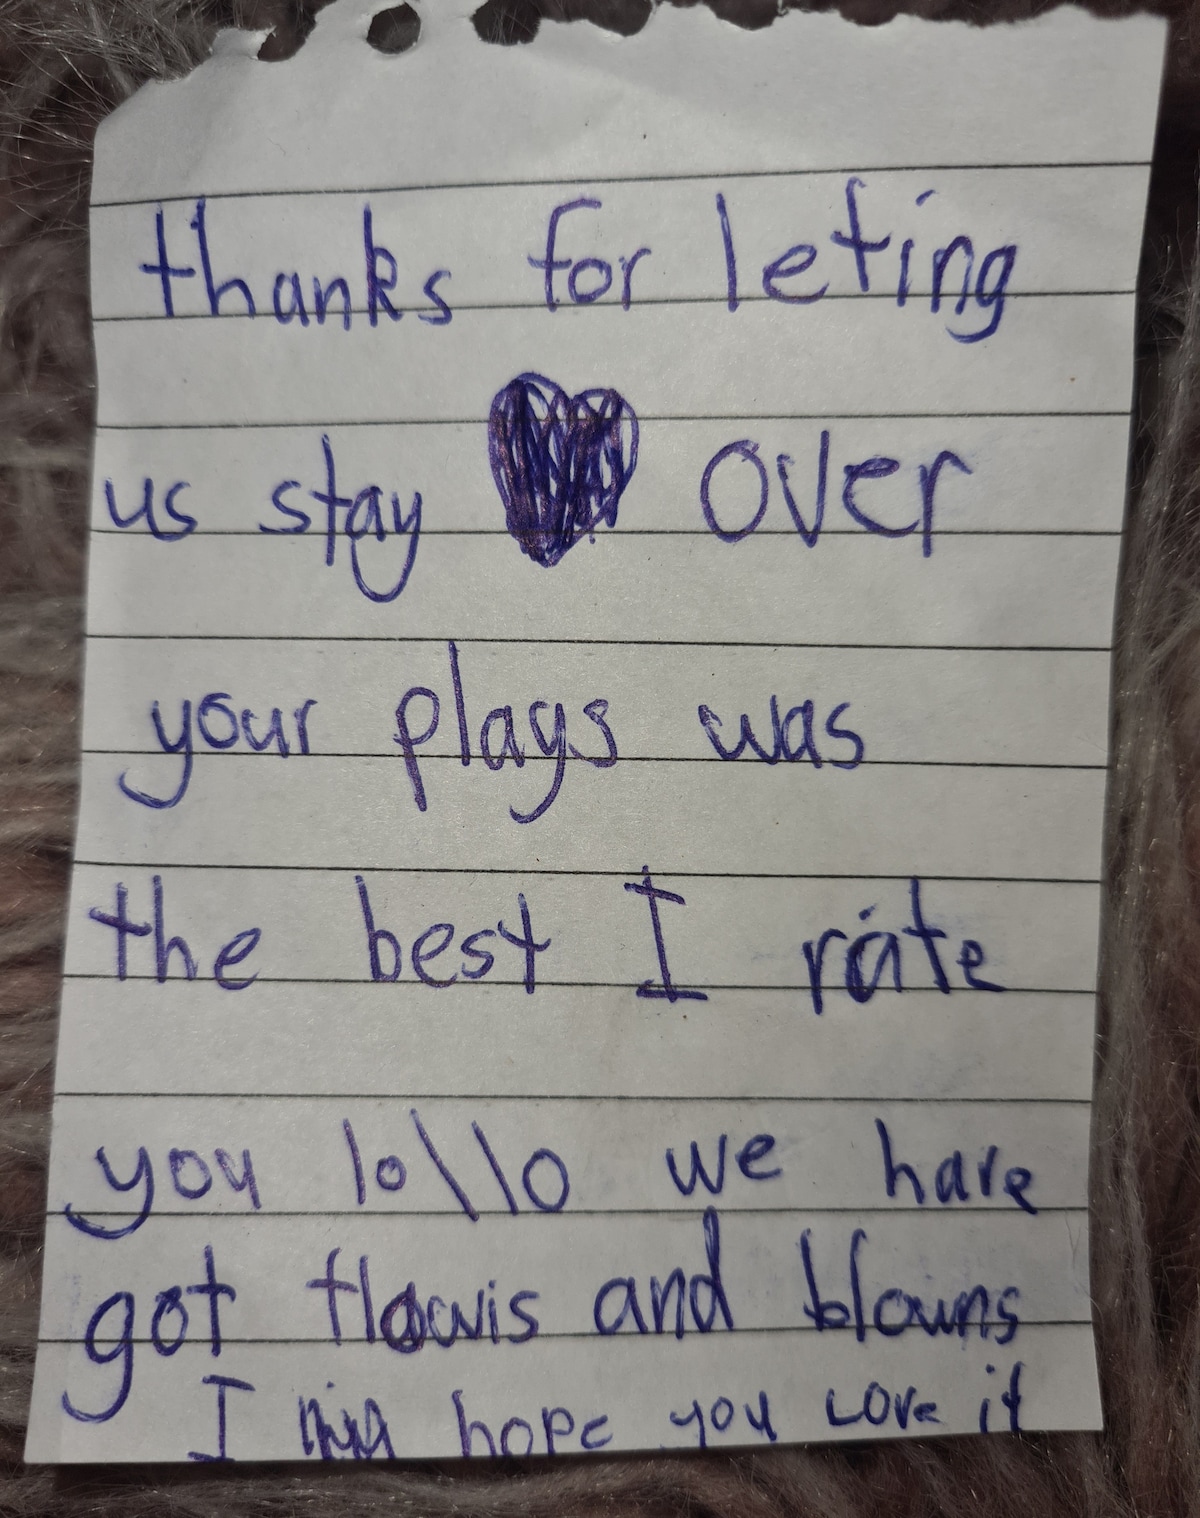 thanks for leting
us stay over
your plays was
the best I rate
you 10\10 we have
got flowis and blowns
I hope you love it